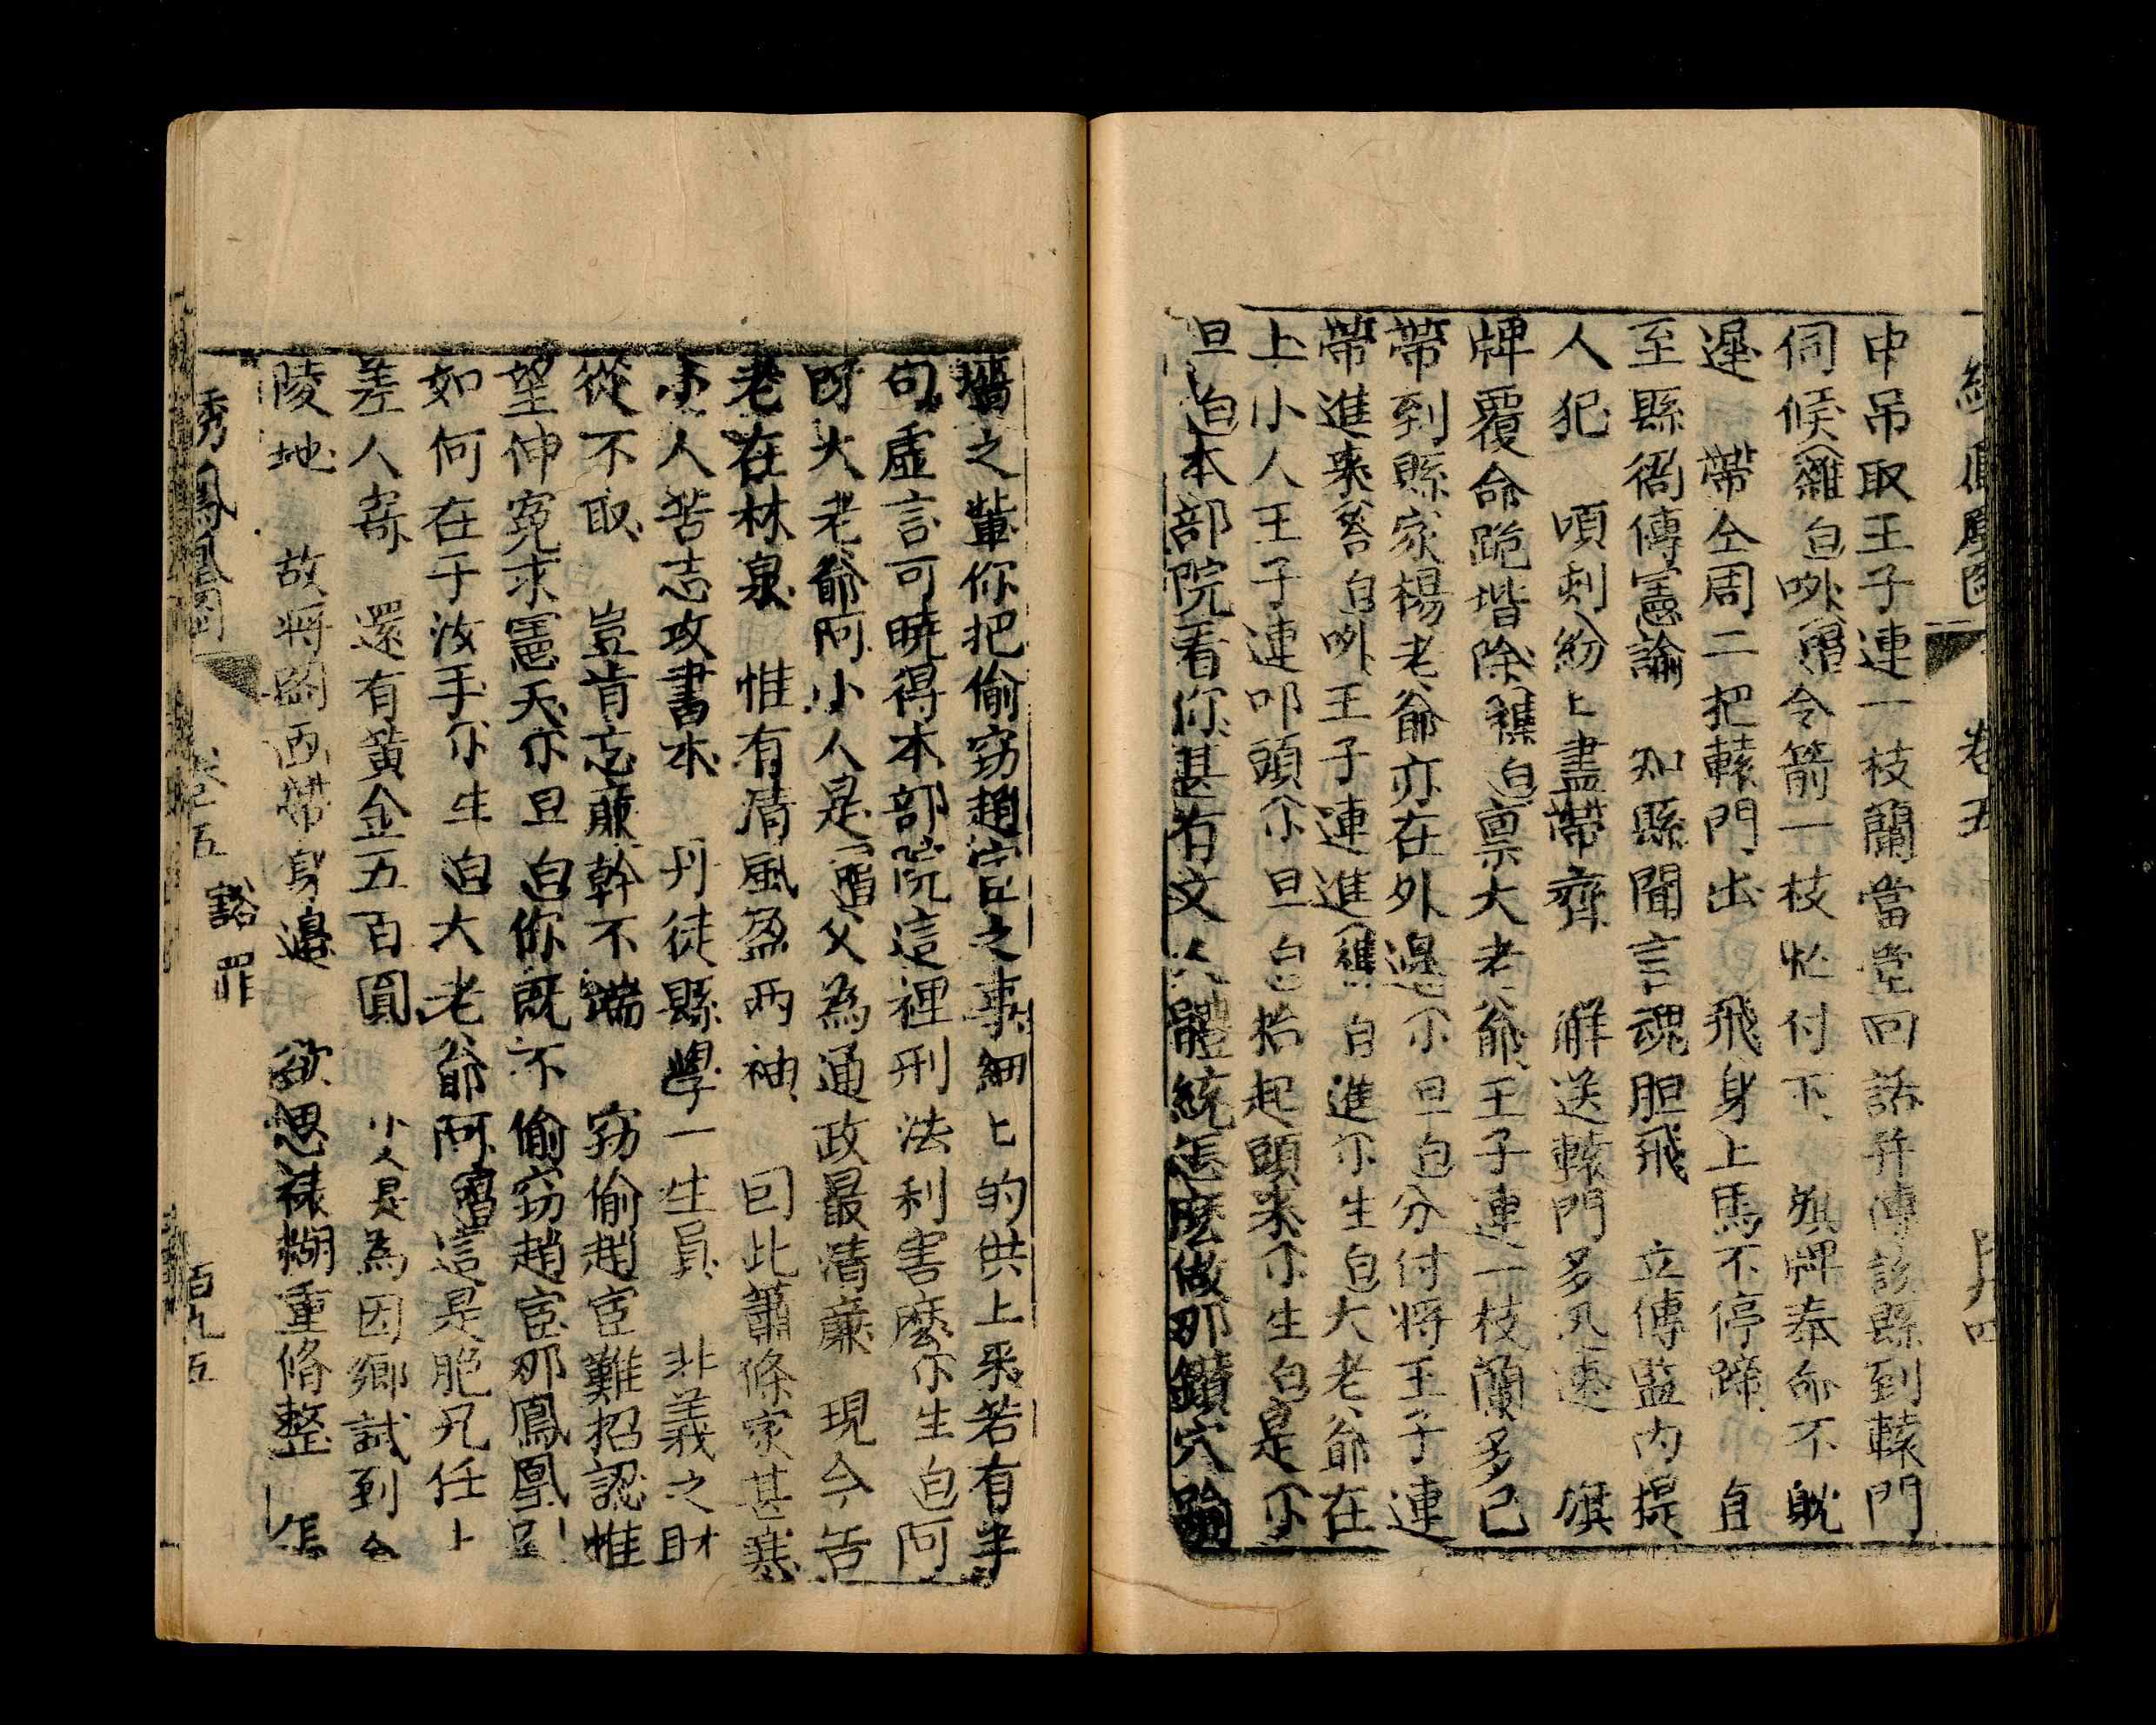 申吊取王子連一枝蘭當堂回話并傳該縣到轅門
伺候雜白咻令箭一枝忙付下 旗牌奉命不躭
遲 帶仝周二把轅門出 飛身上馬不停蹄 自
至縣衙傳憲諭 知縣聞言魂胆飛 立傳監內提
人犯 頃刻紛上盡帶齊 解送轅門多迅速 旗
牌覆命跪堦除白禀大老爺王子連一枝蘭多已
帶到縣家楊老爺亦在外邊尒旦白分付将王子連
帶進來荅白咻王子連進白進尒生白大老爺在
上小人王子連叩頭尒旦白抬起頭來尒生白是尒
旦白本部院看你甚有文人體統怎麽做那鑽穴踰
墻之輩你把偷窃趙宦之事細匕的供上來若有半
句虛言可曉得本部院這裡刑法利害麽尒生白阿
大老爺阿小人是父為通政最清廉 現今告
老在林泉 惟有清風盈两袖 囙此蕭條家甚寒
小人苦志攻書本 丹徒縣學一生員 非義之財
從不取 豈肯忘廉幹不端 窃偷趙宦難招認惟
望伸寃求憲天尒旦白你既不偷窃趙宦那鳳凰啚
如何在于汝手尒生白大老爺阿這是胞兄任上
差人寄 還有黃金五百圓 小人是為因鄉試到金
陵地 故將啚画帶身邊 欲思裱糊重脩整 怎
綉鳳凰啚 卷五 豁罪 百九五